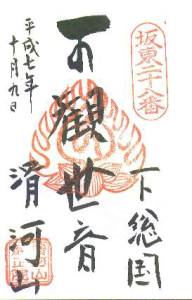 坂東二十八番
下総国
觀世音
滑河山
平成七年
十月九日